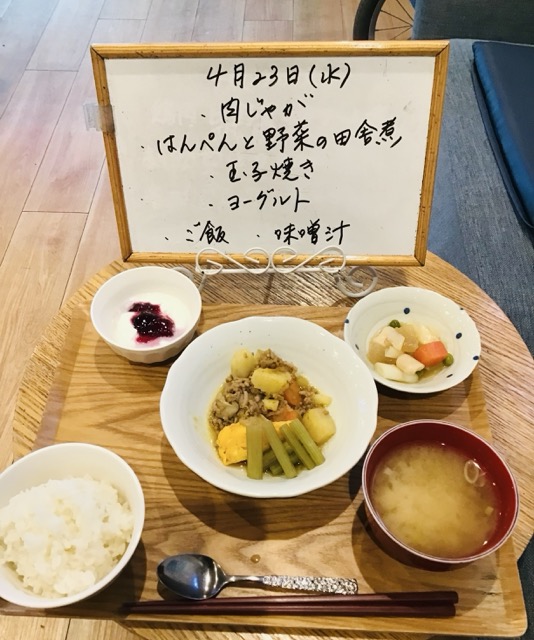 4月23日(水)
・肉じゃが
・はんぺんと野菜の田舎煮
・玉子焼き
・ヨーグルト
・ご飯 ・味噌汁